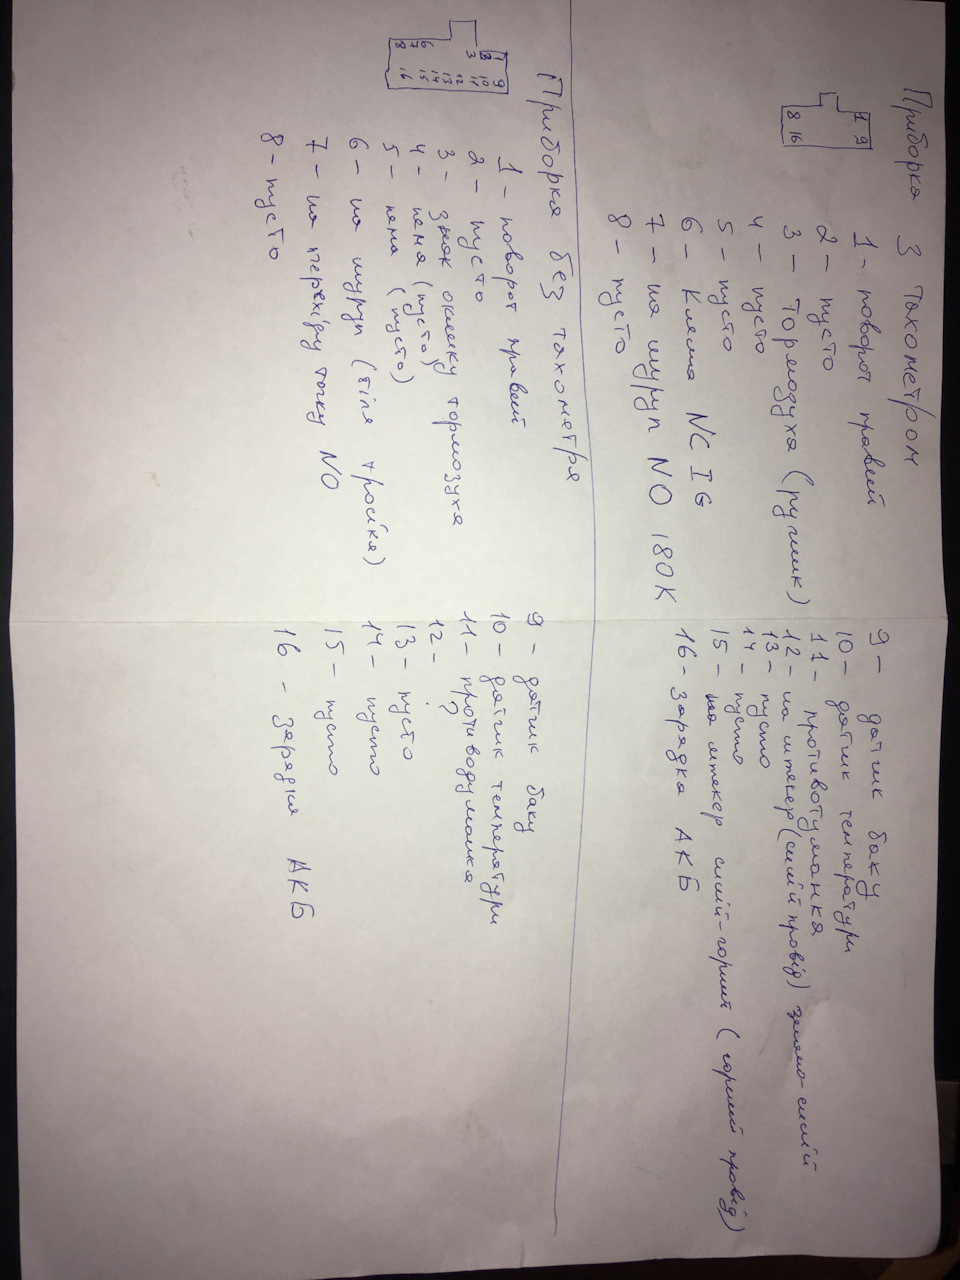 Приборка з тахометром
1 9
8 16
1 – поворот правий
2 – пусто
3 – тормозуха (ручник)
4 – пусто
5 – пусто
6 – клема NC IG
7 – на шуруп NO 180K
8 – пусто
9 – датчик баку
10 – датчик температури
11 – противотуманка
12 – на штекер (синій провід) зелено-синій
13 – пусто
14 – пусто
15 – на штекер синій-горний (горний провід)
16 – зарядка АКБ
Приборка без тахометра
1 9
2 10
3 11
12
13
6 14
7 15
8 16
1 – поворот правий
2 – пусто
3 – знак оклику тормозуха
4 – нема (пусто)
5 – нема (пусто)
6 – на шуруп (біля тросіка)
7 – на перехідну точку NO
8 – пусто
9 – датчик баку
10 – датчик температури
11 – противодумашка
12 – ?
13 – пусто
14 – пусто
15 – пусто
16 – зарядка АКБ